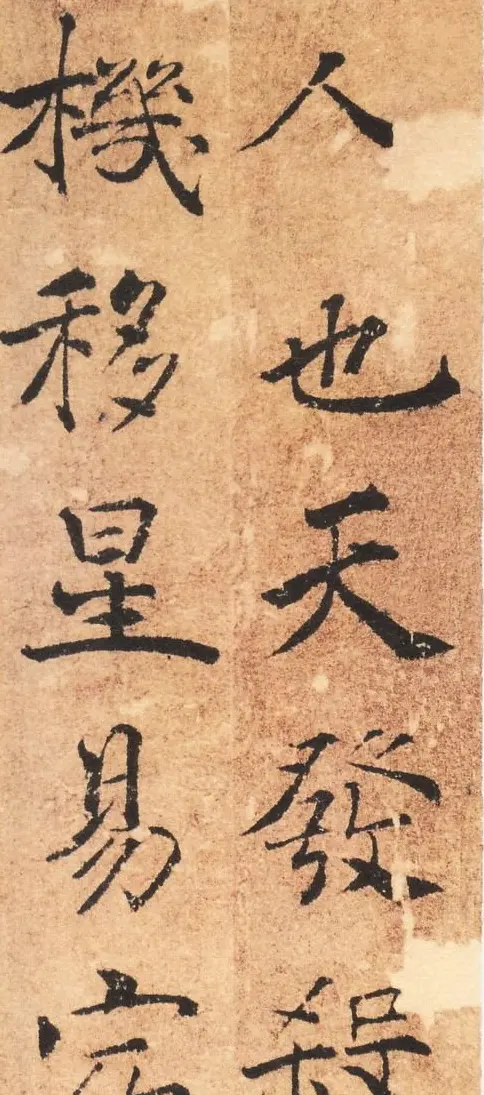 人也天發殺
機移星易宿